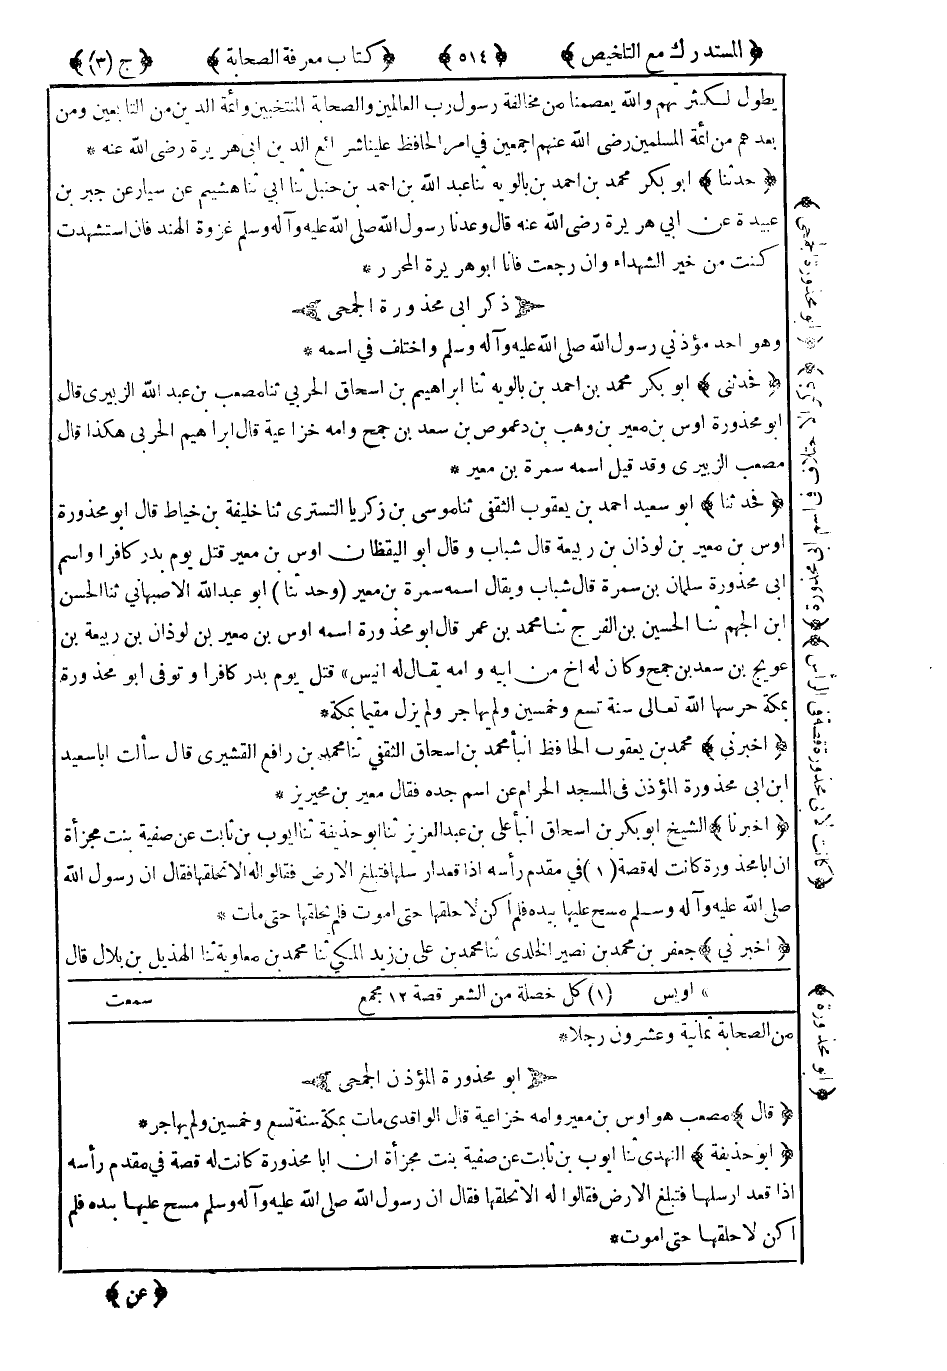 ﴿ المستدرك مع التلخيص ﴾ ﴿ ٥١٤ ﴾ ﴿ كتاب معرفة الصحابة ﴾ ﴿ ج (٣) ﴾
يطول لكثرتهم والله يعصمنا من مخالفة رسول رب العالمين والصحابة المنتخبين وائمة الدين من التابعين ومن
بعدهم من ائمة المسلمين رضى الله عنهم اجمعين في امر الحافظ علينا شرائع الدين ابى هريرة رضى الله عنه *
﴿ حدثنا ﴾ ابو بكر محمد بن احمد بن بالويه ثنا عبد الله بن احمد بن حنبل ثنا ابي ثنا هشيم عن سيار عن جبر بن
عبيدة عن ابي هريرة رضى الله عنه قال وعدنا رسول الله صلى الله عليه وآله وسلم غزوة الهند فان استشهدت
كنت من خير الشهداء وان رجعت فانا ابوهريرة المحرر *
ذكر ابى محذورة الجمحى
وهو احد مؤذني رسول الله صلى الله عليه وآله وسلم واختلف في اسمه *
﴿ فحدثنى ﴾ ابو بكر محمد بن احمد بن بالويه ثنا ابراهيم بن اسحاق الحربي ثنا مصعب بن عبد الله الزبيرى قال
ابو محذورة اوس بن معير بن وهب بن دعموص بن سعد بن جمح وامه خزاعية قال ابراهيم الحربى هكذا قال
مصعب الزبيرى وقد قيل اسمه سمرة بن معير *
﴿ فحدثنا ﴾ ابو سعيد احمد بن يعقوب الثقفى ثنا موسى بن زكريا التسترى ثنا خليفة بن خياط قال ابو محذورة
اوس بن معير بن لوذان بن ربيعة قال شباب وقال ابو اليقظان اوس بن معير قتل يوم بدر كافرا واسم
ابى محذورة سلمان بن سمرة قال شباب ويقال اسمه سمرة بن معير (وحدثنا) ابو عبدالله الاصبهاني ثنا الحسن
ابن الجهم ثنا الحسين بن الفرج ثنا محمد بن عمر قال ابو محذورة اسمه اوس بن معير بن لوذان بن ربيعة بن
عويج بن سعد بن جمح وكان له اخ من ابيه وامه يقال له انيس» قتل يوم بدر كافرا وتوفى ابو محذورة
بمكة حرسها الله تعالى سنة تسع وخمسين ولم يهاجر ولم يزل مقيما بمكة*
﴿ اخبرني ﴾ محمد بن يعقوب الحافظ انبأ محمد بن اسحاق الثقفي ثنا محمد بن رافع القشيرى قال سألت اباسعيد
ابن ابى محذورة المؤذن فى المسجد الحرام عن اسم جده فقال معير بن محيريز *
﴿ اخبرنا ﴾ الشيخ ابوبكر بن اسحاق انبأ على بن عبد العزيز ثنا ابو حذيفة ثنا ايوب بن ثابت عن صفية بنت مجزأة
ان ابا محذورة كانت له قصة (١) في مقدم رأسه اذا قعد ارسلها فتبلغ الارض فقالوا له الا تحلقها فقال ان رسول الله
صلى الله عليه وآله وسلم مسح عليها بيده فلم أكن لاحلقها حتى اموت فلم يحلقها حتى مات *
﴿ اخبرني ﴾ جعفر بن محمد بن نصير الخلدى ثنا محمد بن على بن زيد المكي ثنا محمد بن معاوية ثنا الهذيل بن بلال قال
» اويس (١) كل خصلة من الشعر قصة ١٢ مجمع سمعت
من الصحابة ثمانية وعشرون رجلا*
ابو محذورة المؤذن الجمحى
﴿ قال ﴾ مصعب هو اوس بن معير وامه خزاعية قال الواقدى مات بمكة سنة تسع وخمسين ولم يهاجر*
﴿ ابو حذيفة ﴾ النهدى ثنا ايوب بن ثابت عن صفية بنت مجزأة ان ابا محذورة كانت له قصة في مقدم رأسه
اذا قعد ارسلها فتبلغ الارض فقالوا له الا تحلقها فقال ان رسول الله صلى الله عليه وآله وسلم مسح عليها بيده فلم
اكن لاحلقها حتى اموت*
﴿ عن ﴾
﴿ ابو محذورة الجمحى ﴾
﴿ كانت لابى محذورة قصة فى الرأس ﴾
﴿ ابو محذورة ﴾